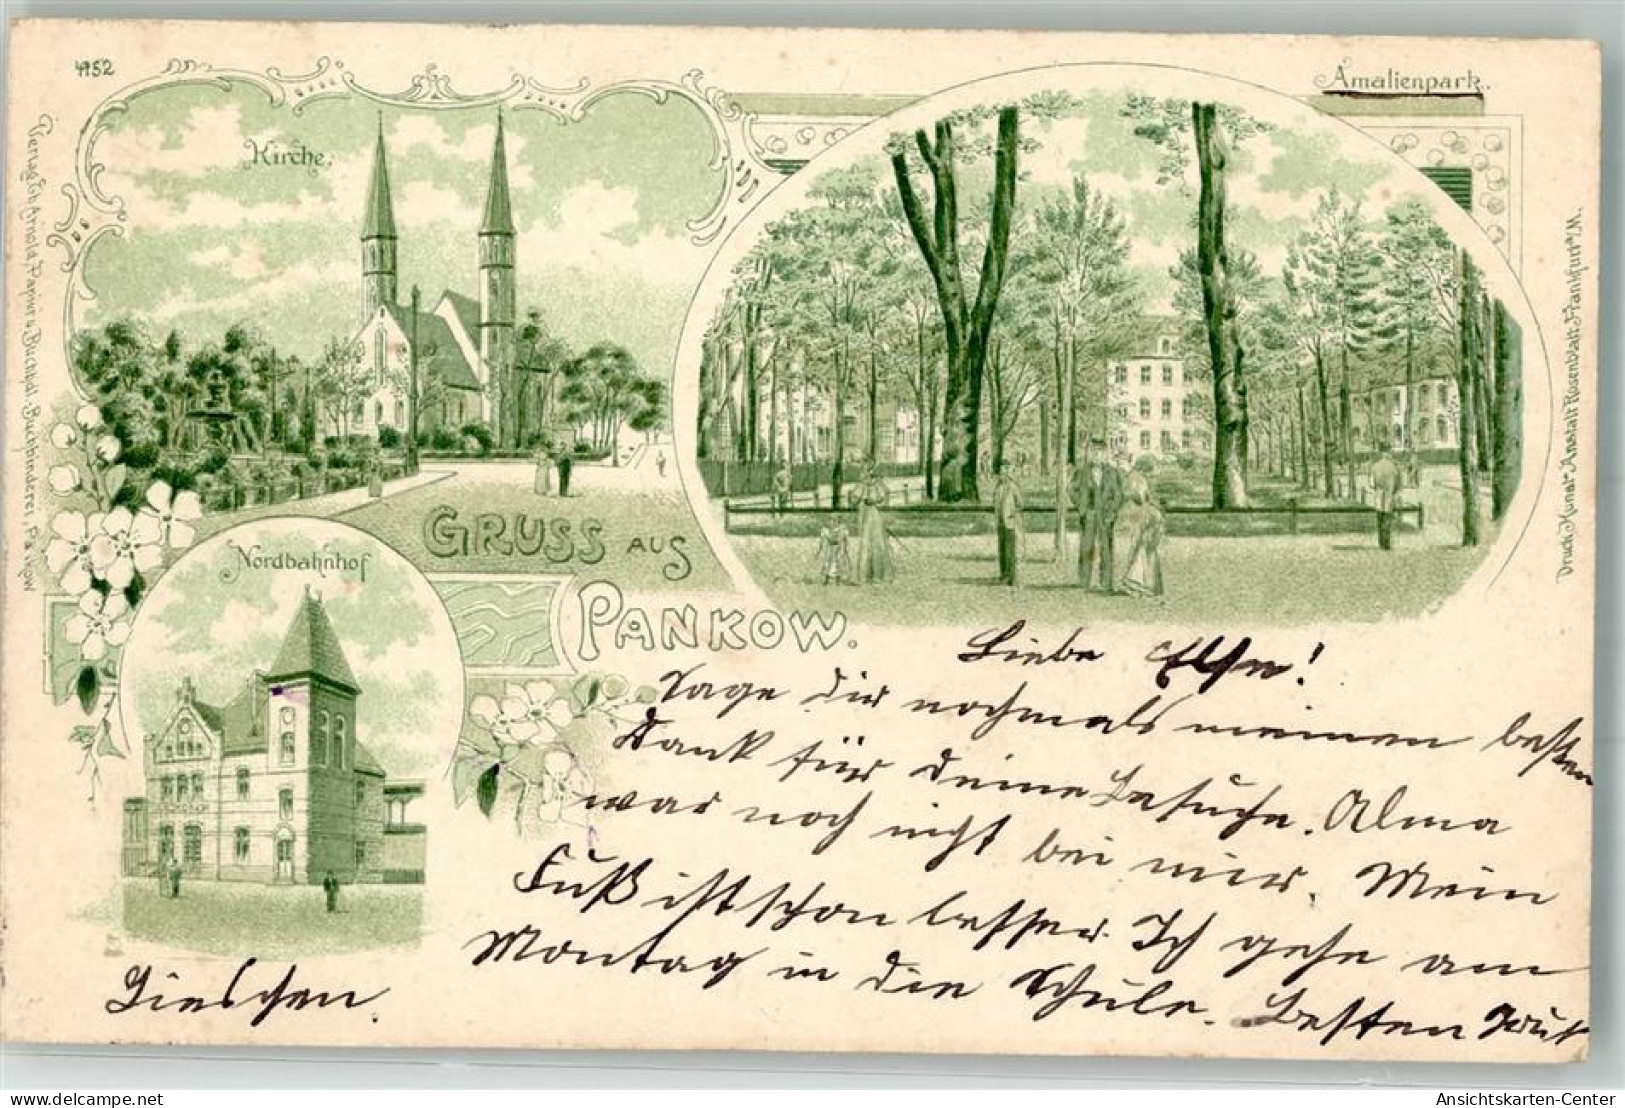 4952
Kirche.
Amalienpark.
Verlag Th. Arnold, Papier u. Buchhdl. Buchbinderei, Pankow
Druck Kunst-Anstalt Rosenblatt Frankfurt a/M.
Nordbahnhof
GRUSS AUS
PANKOW.
Liebe Else!
Sage dir nochmals meinen besten
Dank für deine Besuche. Alma
war noch nicht bei mir. Mein
Fuß ist schon besser. Ich gehe am
Montag in die Schule. Besten Gruß
Lieschen.
Ansichtskarten-Center
www.delcampe.net